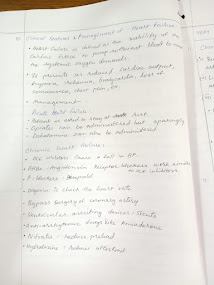 Clinical features & Management of Heart Failure.
• Heart Failure is defined as the inability of the
Cardiac Output to pump sufficient blood to meet
the systemic oxygen demands.
• It presents as reduced cardiac output,
dyspnea, ischemia, tachycardia, loss of
consciousness, chest pain, etc.
• Management -
Acute Heart Failure :
• Patient is asked to stay at rest
• Opiates can be administered but sparingly
• Dobutamine can also be administered
Chronic Heart Failure :
• ACE inhibitors
• ARBs : Angiotensin Receptor blockers work similar
to ACE inhibitors
• β-blockers :
• Digoxin to check the heart rate
• Bypass surgery of coronary artery
• Ventricular assisting devices / Stents
• Antiarrhythmic drugs like Amiodarone
• Nitrates : reduce preload
• Hydralazine : Reduce afterload